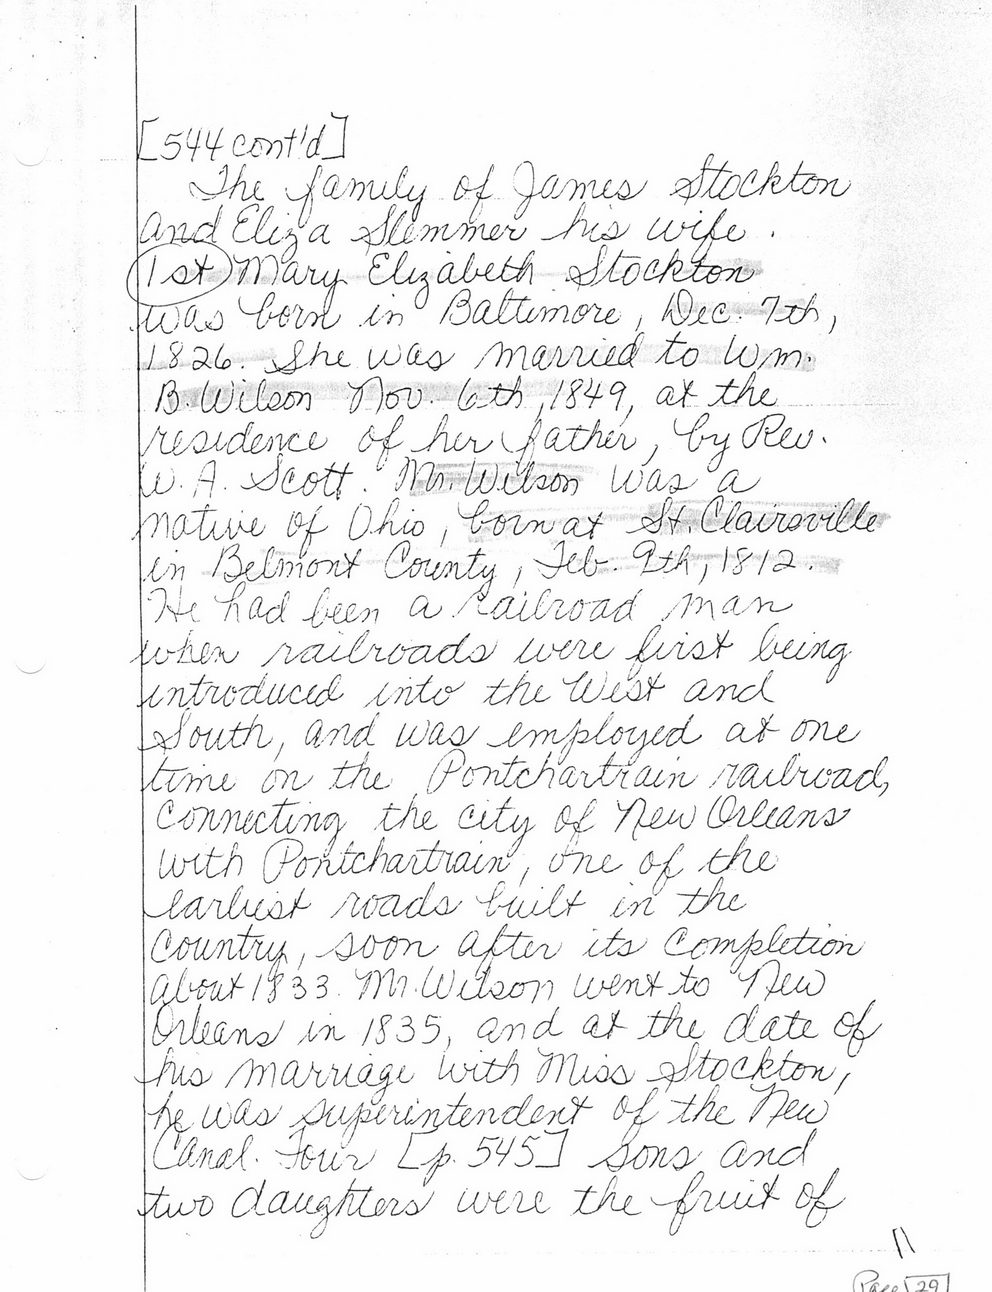 [544 cont'd]
The family of James Stockton
and Eliza Slemmer his wife.
1st Mary Elizabeth Stockton
was born in Baltimore, Dec. 7th,
1826. She was married to Wm.
B. Wilson Nov. 6th, 1849, at the
residence of her father, by Rev.
W. A. Scott. Mr. Wilson was a
native of Ohio, born at St. Clairsville
in Belmont County, Feb. 9th, 1812.
He had been a railroad man
when railroads were first being
introduced into the West and
South, and was employed at one
time on the Pontchartrain railroad,
connecting the city of New Orleans
with Pontchartrain, one of the
earliest roads built in the
country, soon after its completion
about 1833. Mr. Wilson went to New
Orleans in 1835, and at the date of
his marriage with Miss Stockton,
he was superintendent of the New
Canal. Four [p. 545] sons and
two daughters were the fruit of
11
Page 29